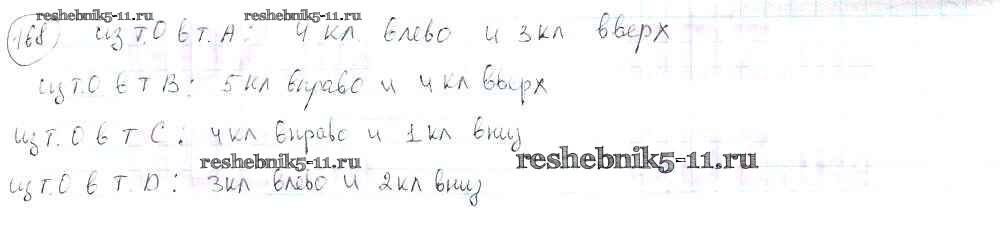 reshebnik5-11.ru reshebnik5-11.ru
168) из т.О в т.А: 4 кл. влево и 3 кл вверх
из т.О в т В: 5 кл вправо и 4 кл вверх
из т.О в т С: 4 кл вправо и 1 кл вниз
reshebnik5-11.ru reshebnik5-11.ru
из т.О в т.D: 3 кл влево и 2 кл вниз